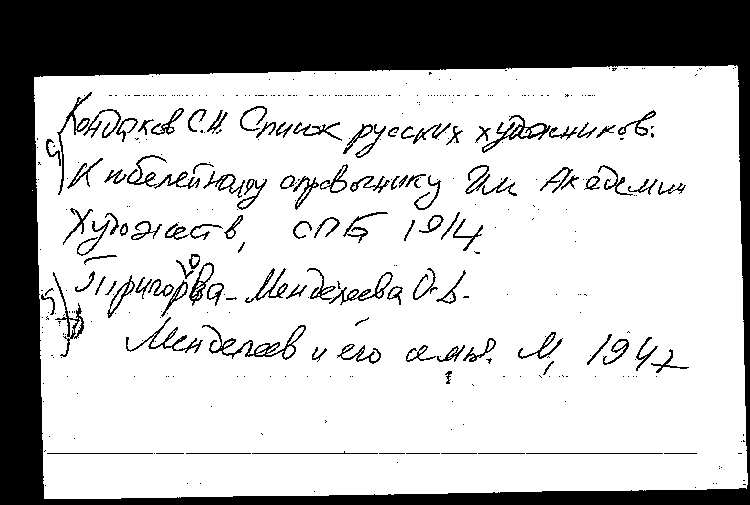 Кондаков С.Н. Список русских художников.
К юбилейному справочнику Им Академии
Художеств, СПБ 1914.
Тригорова-Менделеева О.Д.
Менделеев и его семья. М, 1947